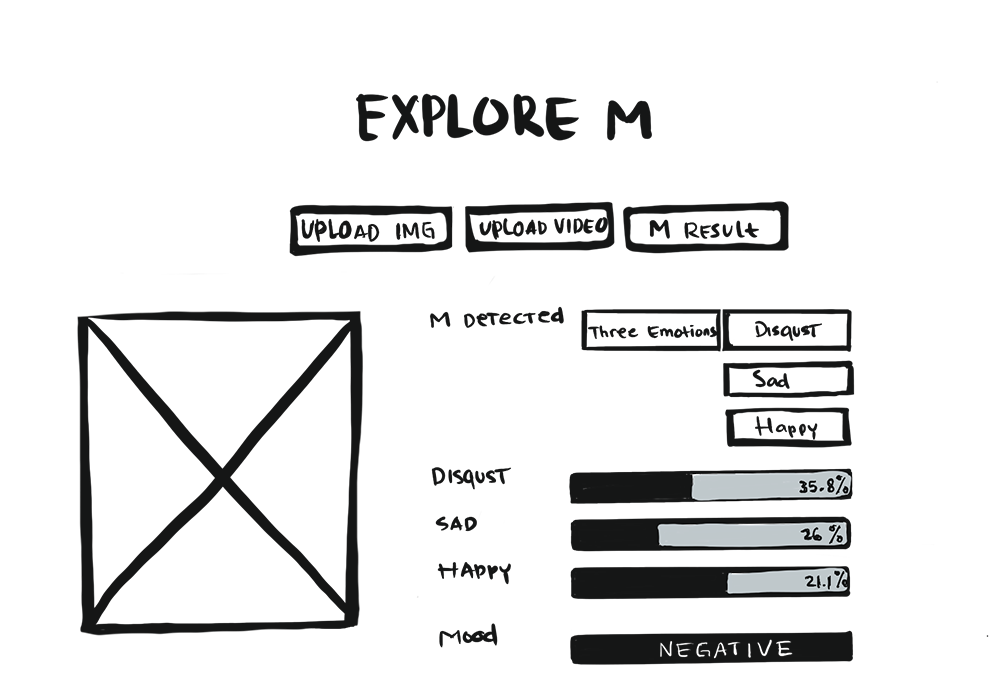 EXPLORE M
UPLOAD IMG
UPLOAD VIDEO
M RESULt
M DETECTED
Three Emotions
DISQUST
Sad
Happy
DISQUST
35.8%
SAD
26 %
HAPPY
21.1%
Mood
NEGATIVE